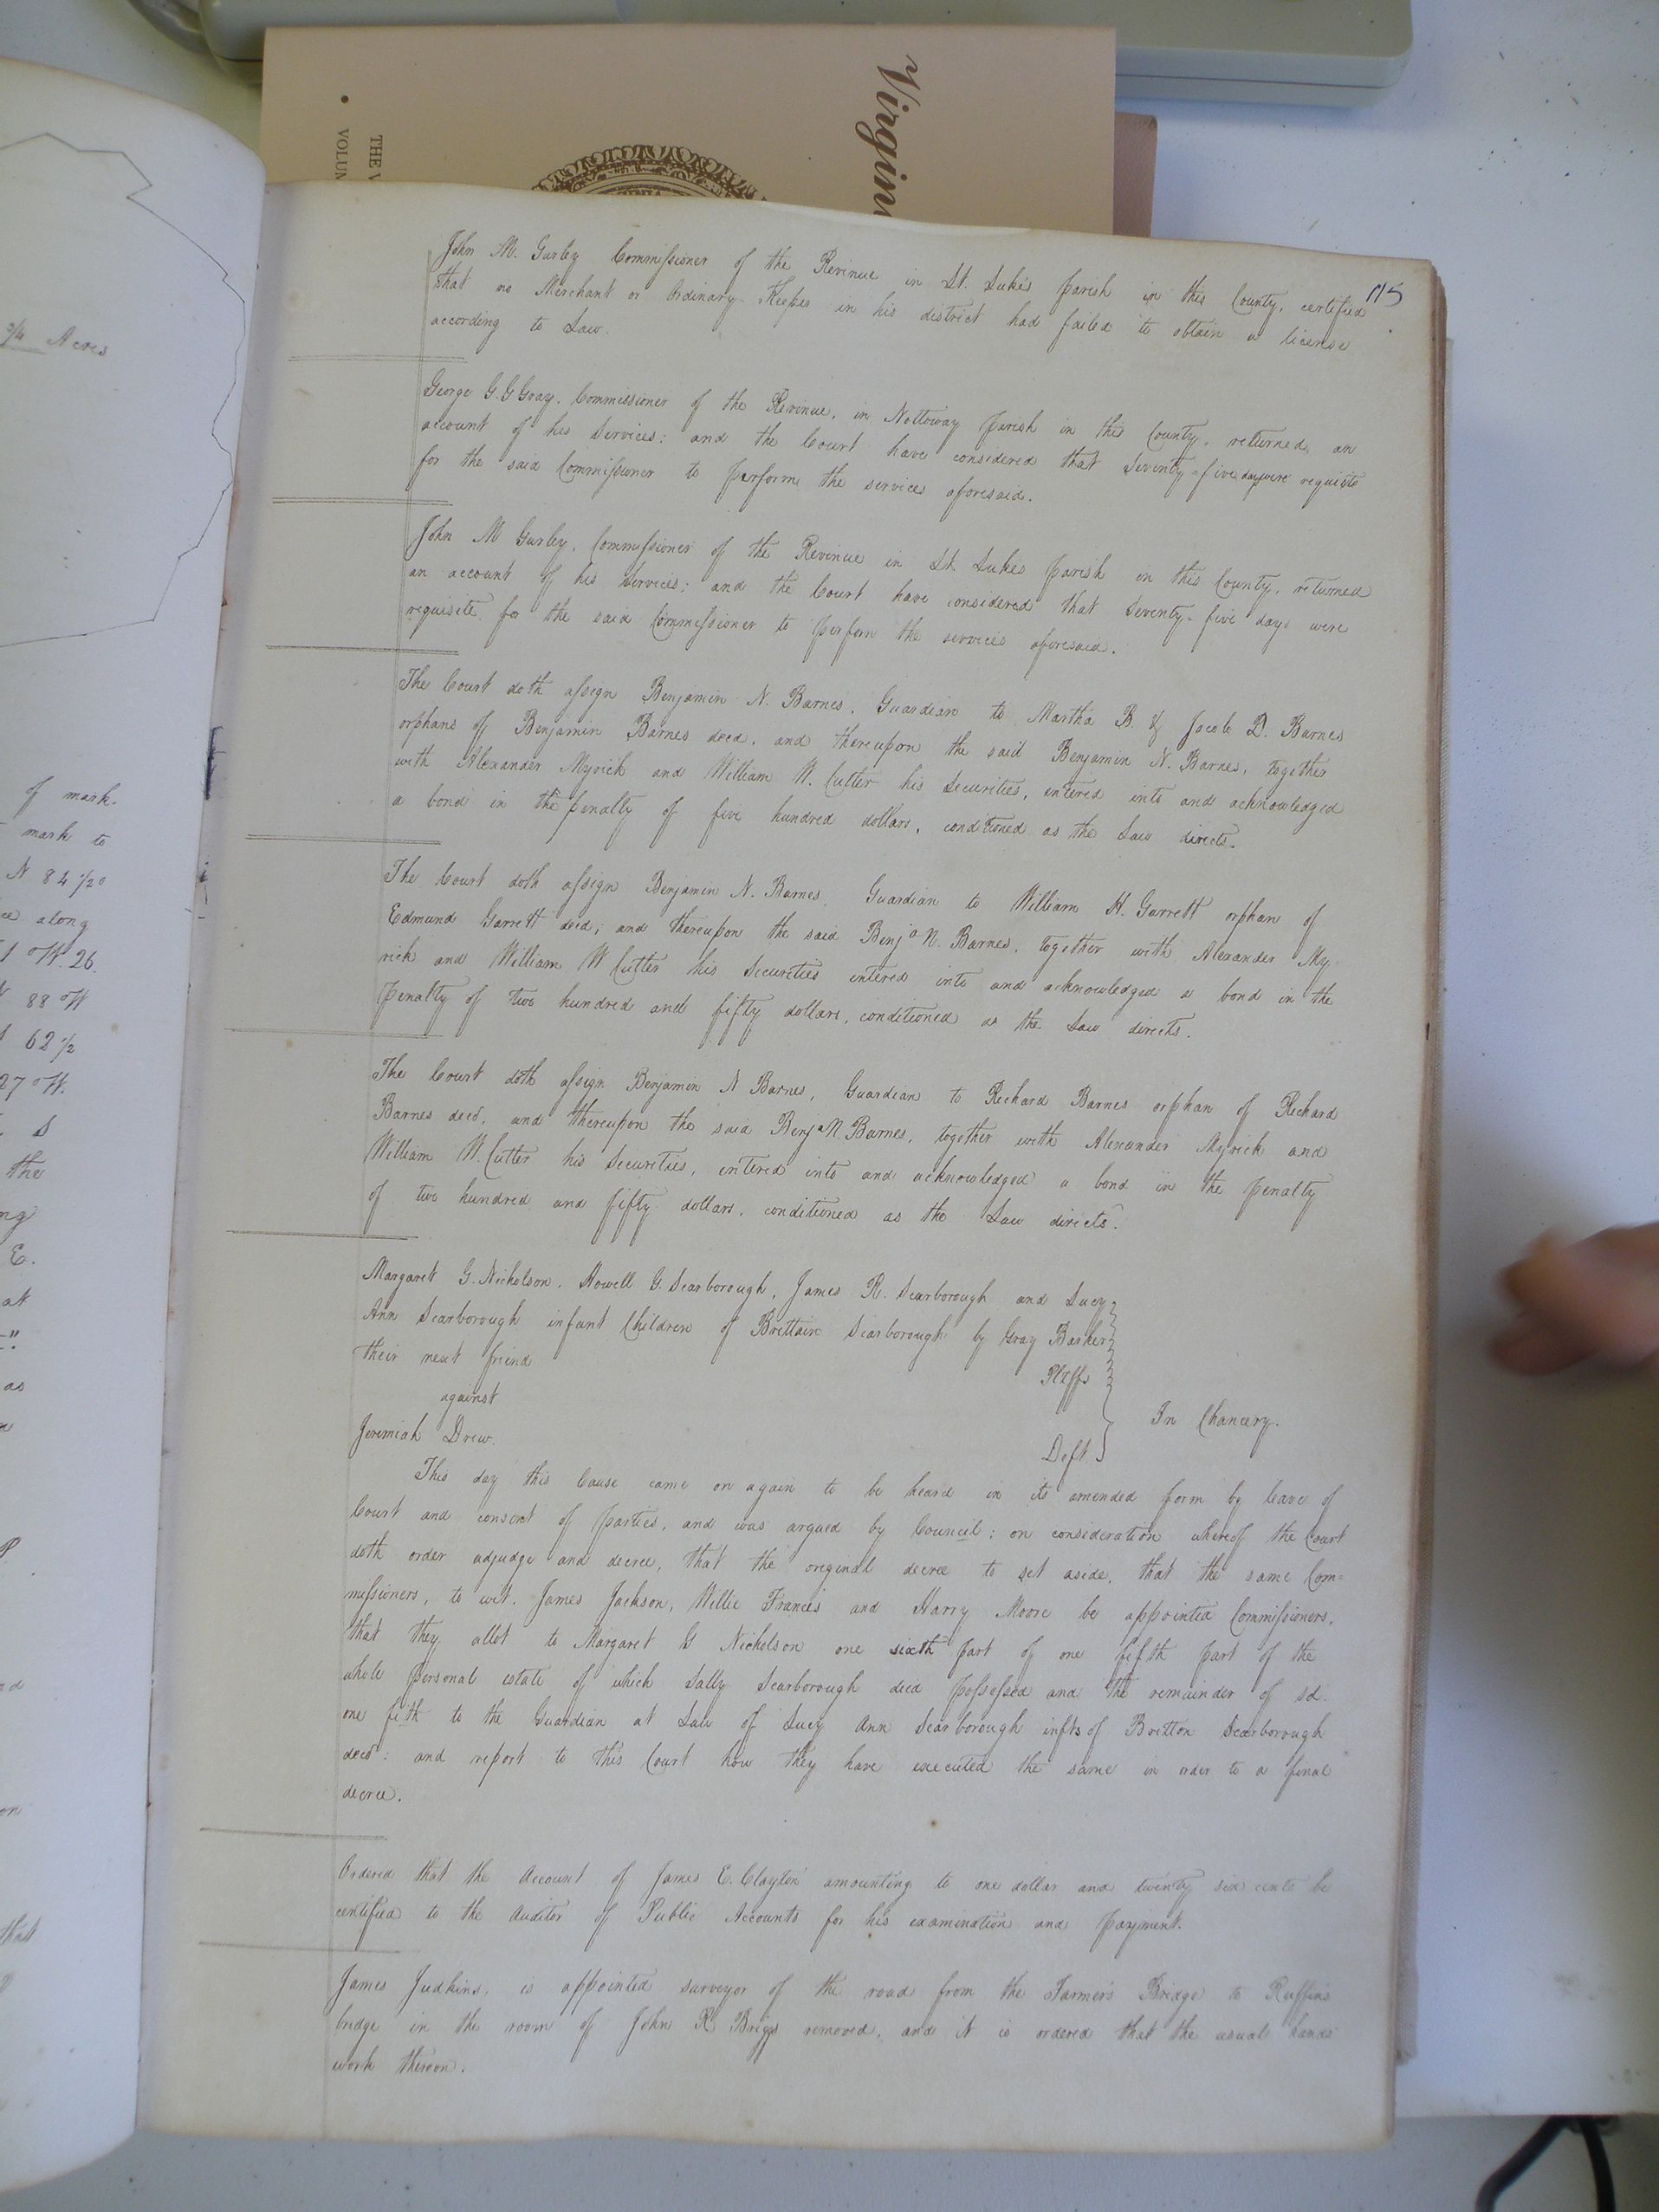 Virgin
THE V
VOLUM
115
John M. Gurley Commissioner of the Revenue in St. Luke's parish in this County, certified
that no Merchant or Ordinary Keeper in his district had failed to obtain a license
according to Law.
George G. G Gray. Commissioner of the Revenue, in Nottoway Parish in this County, returned an
account of his Services: and the Court have considered that Seventy-five days were requisite
for the said Commissioner to perform the services aforesaid.
John M Gurley, Commissioner of the Revenue in St. Lukes parish in this County, returned
an account of his Services; and the Court have considered that Seventy-five days were
requisite for the said Commissioner to perform the services aforesaid.
The Court doth assign Benjamin N. Barnes, Guardian to Martha B. & Jacob D. Barnes
orphans of Benjamin Barnes decd. and thereupon the said Benjamin N. Barnes, together
with Alexander Myrick and William W. Cutler his Securities, entered into and acknowledged
a bond in the penalty of five hundred dollars, conditioned as the Law directs.
The Court doth assign Benjamin N. Barnes Guardian to William H. Garrett orphan of
Edmund Garrett decd; and thereupon the said Benja N. Barnes, together with Alexander My-
rick and William W Cutler his Securities entered into and acknowledged a bond in the
Penalty of two hundred and fifty dollars, conditioned as the Law directs.
The Court doth assign Benjamin N Barnes, Guardian to Richard Barnes orphan of Richard
Barnes decd, and thereupon the said Benja N. Barnes, together with Alexander Myrick and
William W. Cutler his Securities, entered into and acknowledged a bond in the penalty
of two hundred and fifty dollars, conditioned as the Law directs.
Margaret G. Nicholson. Howell G. Scarborough, James R. Scarborough and Lucy
Ann Scarborough infant Children of Brittain Scarborough by Gray Barker
their next friend
Pltffs
against
In Chancery.
Jeremiah Drew.
Deft.
This day this Cause came on again to be heard in its amended form by leave of
Court and consent of parties, and was argued by Council; on consideration whereof the Court
doth order adjudge and decree, that the original decree to set aside, that the same Com=
missioners, to wit. James Jackson, Willie Francis and Harry Moore be appointed Commissioners,
that they allot to Margaret G Nicholson one sixth part of one fifth part of the
whole personal estate of which Sally Scarborough decd possessed and the remainder of sd.
one fifth to the Guardian at Law of Lucy Ann Scarborough infts of Britton Scarborough
decd: and report to this Court how they have executed the same in order to a final
decree.
Ordered that the Account of James E. Clayton amounting to one dollar and twenty six cents be
certified to the Auditor of Public Accounts for his examination and payment.
James Judkins, is appointed surveyor of the road from the Farmer's Bridge to Ruffins
bridge in the room of John R Briggs removed, and it is ordered that the usual hands
work thereon.
3/4 Acres
of mark.
mark to
N 84 1/2°
along
W. 26.
88 W
62 1/2
27 W.
S
the
E.
at
as
that